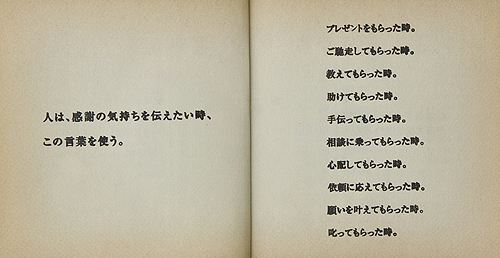 人は、感謝の気持ちを伝えたい時、
この言葉を使う。
プレゼントをもらった時。
ご馳走してもらった時。
教えてもらった時。
助けてもらった時。
手伝ってもらった時。
相談に乗ってもらった時。
心配してもらった時。
依頼に応えてもらった時。
願いを叶えてもらった時。
叱ってもらった時。